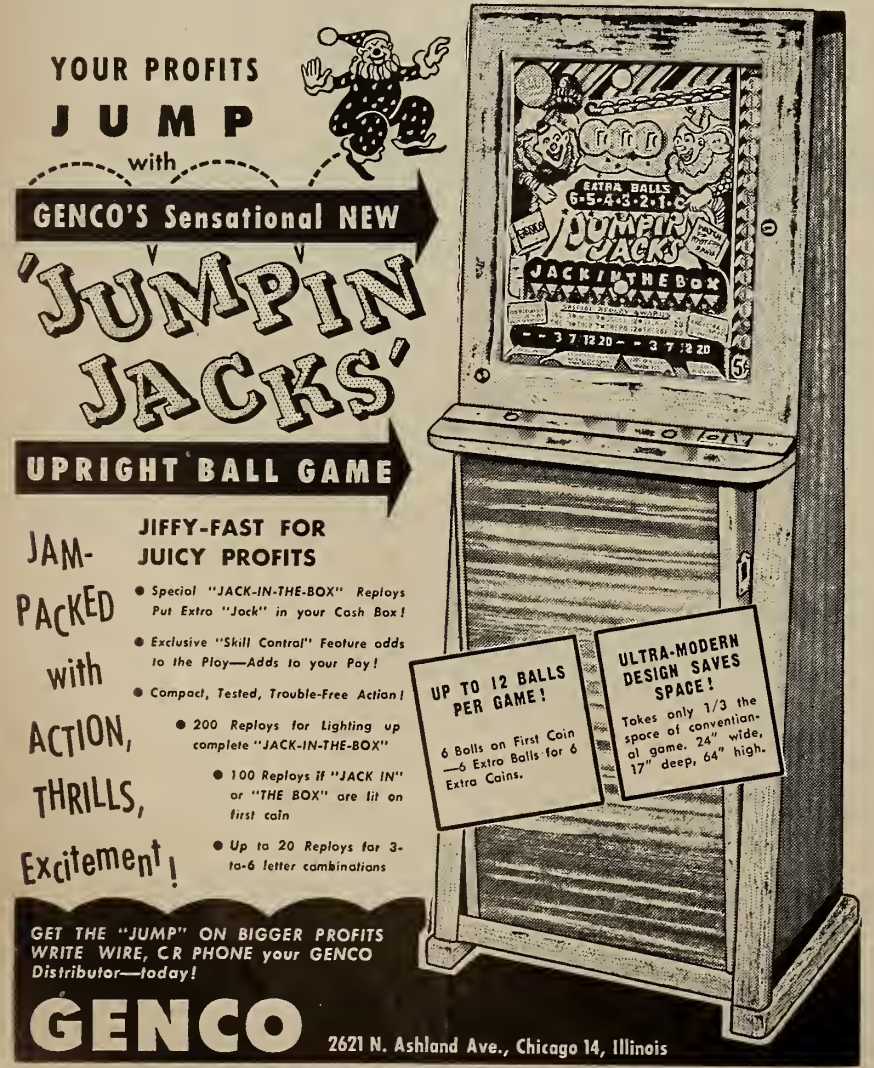 YOUR PROFITS
JUMP
with
GENCO'S Sensational NEW
'JUMPIN
JACKS'
UPRIGHT BALL GAME
JAM-
PACKED
with
ACTION,
THRILLS,
Excitement!
JIFFY-FAST FOR
JUICY PROFITS
● Special "JACK-IN-THE-BOX" Replays
Put Extra "Jack" in your Cash Box!
● Exclusive "Skill Control" Feature adds
to the Play—Adds to your Pay!
● Compact, Tested, Trouble-Free Action!
● 200 Replays for Lighting up
complete "JACK-IN-THE-BOX"
● 100 Replays if "JACK IN"
or "THE BOX" are lit on
first coin
● Up to 20 Replays for 3-
to-6 letter combinations
EXTRA BALLS
6-5-4-3-2-1-
JUMPIN
JACKS
JACK IN THE BOX
- - 3 7 12 20 - - 3 7 12 20
5¢
UP TO 12 BALLS
PER GAME!
6 Balls on First Coin
—6 Extra Balls for 6
Extra Coins.
ULTRA-MODERN
DESIGN SAVES
SPACE!
Takes only 1/3 the
space of convention-
al game. 24" wide,
17" deep, 64" high.
GET THE "JUMP" ON BIGGER PROFITS
WRITE WIRE, CR PHONE your GENCO
Distributor—today!
GENCO
2621 N. Ashland Ave., Chicago 14, Illinois